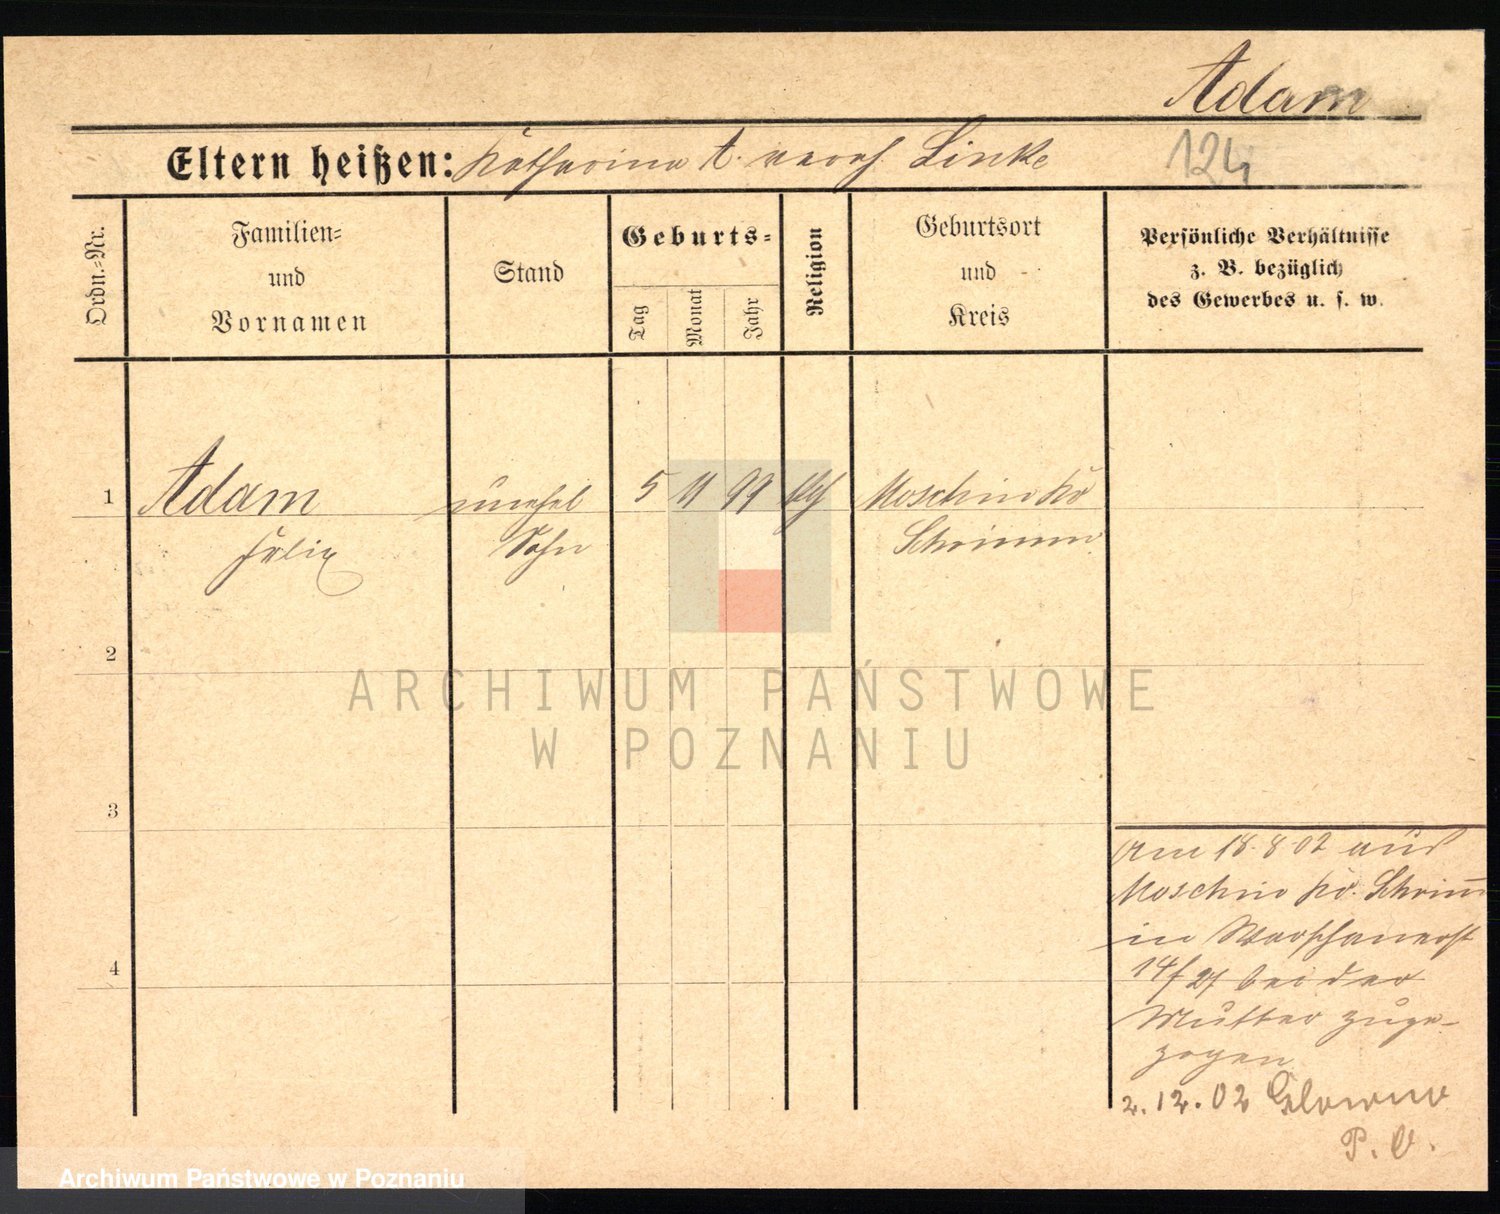 Adam
124
Eltern heißen: Katharina A. verh. Linke
Ordn.-Nr.
Familien-
und
Vornamen
Stand
Geburts-
Tag
Monat
Jahr
Religion
Geburtsort
und
Kreis
Persönliche Verhältnisse
z. B. bezüglich
des Gewerbes u. s. w.
1 Adam unehel 5 11 99 Moschin Kr
Felix Sohn Schrimm
2
3
4
Am 18.8.02 aus
Moschin Kr. Schrimm
in Warschauerst
14/27 bei der
Mutter zuge-
zogen
2.12.02 Glowno
P. O.
ARCHIWUM PAŃSTWOWE
W POZNANIU
Archiwum Państwowe w Poznaniu